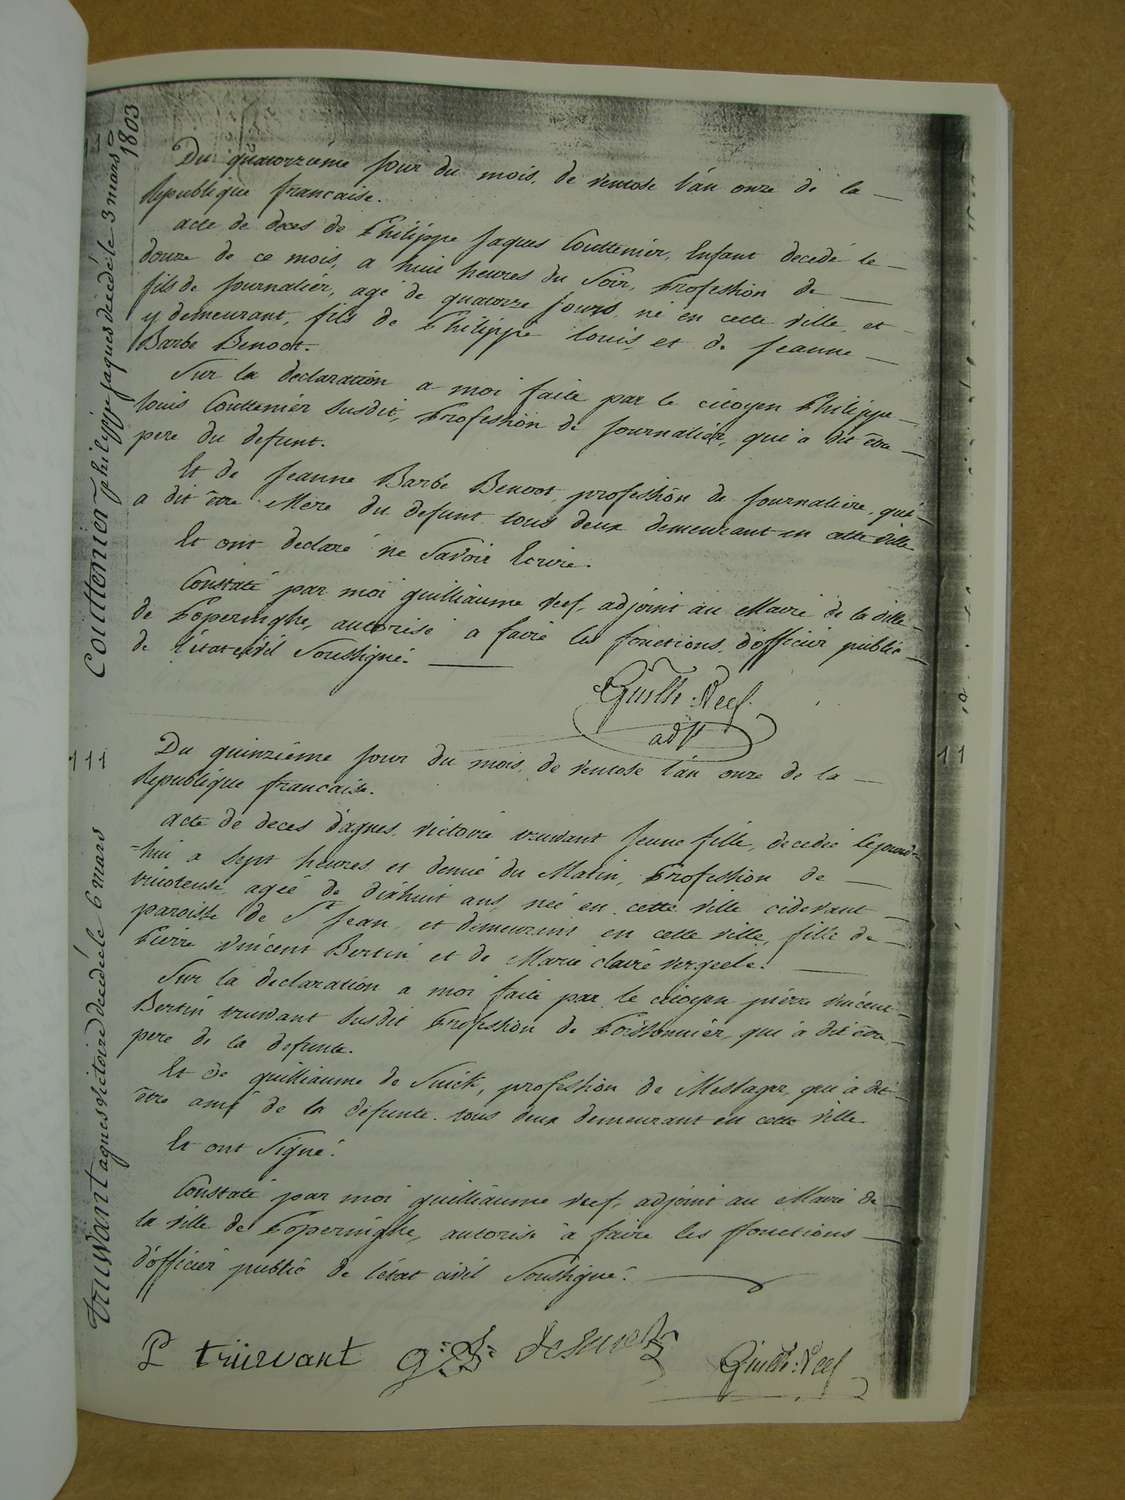 Couttenier philippe jaques décédé le 3 mars
1803
Du quatorzieme jour du mois de ventose l'an onze de la
Republique francaise.
acte de deces de Philippe Jaques Couttenier, Enfant decedé le
douze de ce mois, a huit heures du Soir, Profession de
fils de Journalier, agé de quatorze jours, né en cette ville, et
y demeurant, fils de Philippe Louis, et de Jeanne
Barbe Benoot.
Sur la declaration a moi faite par le citoyen Philippe
Louis Couttenier susdit, Profession de Journalier, qui a dit être
pere du defunt.
Et de Jeanne Barbe Benoot, profession de Journaliere, qui
a dit être Mere du defunt tous deux demeurant en cette ville
Et ont declaré ne Savoir Ecrire.
Constaté par moi guilliaume Neef, adjoint au Maire de la ville
de Poperinghe, autorisé a faire les fonctions d'officier public
de l'etat civil Soussigné.
Guilh: Neef
adjt
111
11
truwant agnes victoire decédée le 6 mars
Du quinzieme jour du mois de ventose l'an onze de la
Republique francaise.
acte de deces d'agnes victoire truwant jeune fille, decedée cejourd-
-hui a Sept heures et demie du Matin, Profession de
agée de dixhuit ans, née en cette ville cidevant
paroisse de St Jean, et demeurant en cette ville, fille de
Pierre Vincent Bertin et de Marie claire
Sur la declaration a moi faite par le citoyen pierre vincent
Bertin truwant Susdit Profession de qui a dit être
pere de la defunte.
Et de guilliaume de Smick, profession de Messager, qui a dit
être ami de la defunte tous deux demeurant en cette ville
Et ont Signé.
Constaté par moi guilliaume Neef, adjoint au Maire de
la ville de Poperinghe, autorisé a faire les fonctions
d'officier public de l'etat civil Soussigné.
P truwant Guilh: Neef